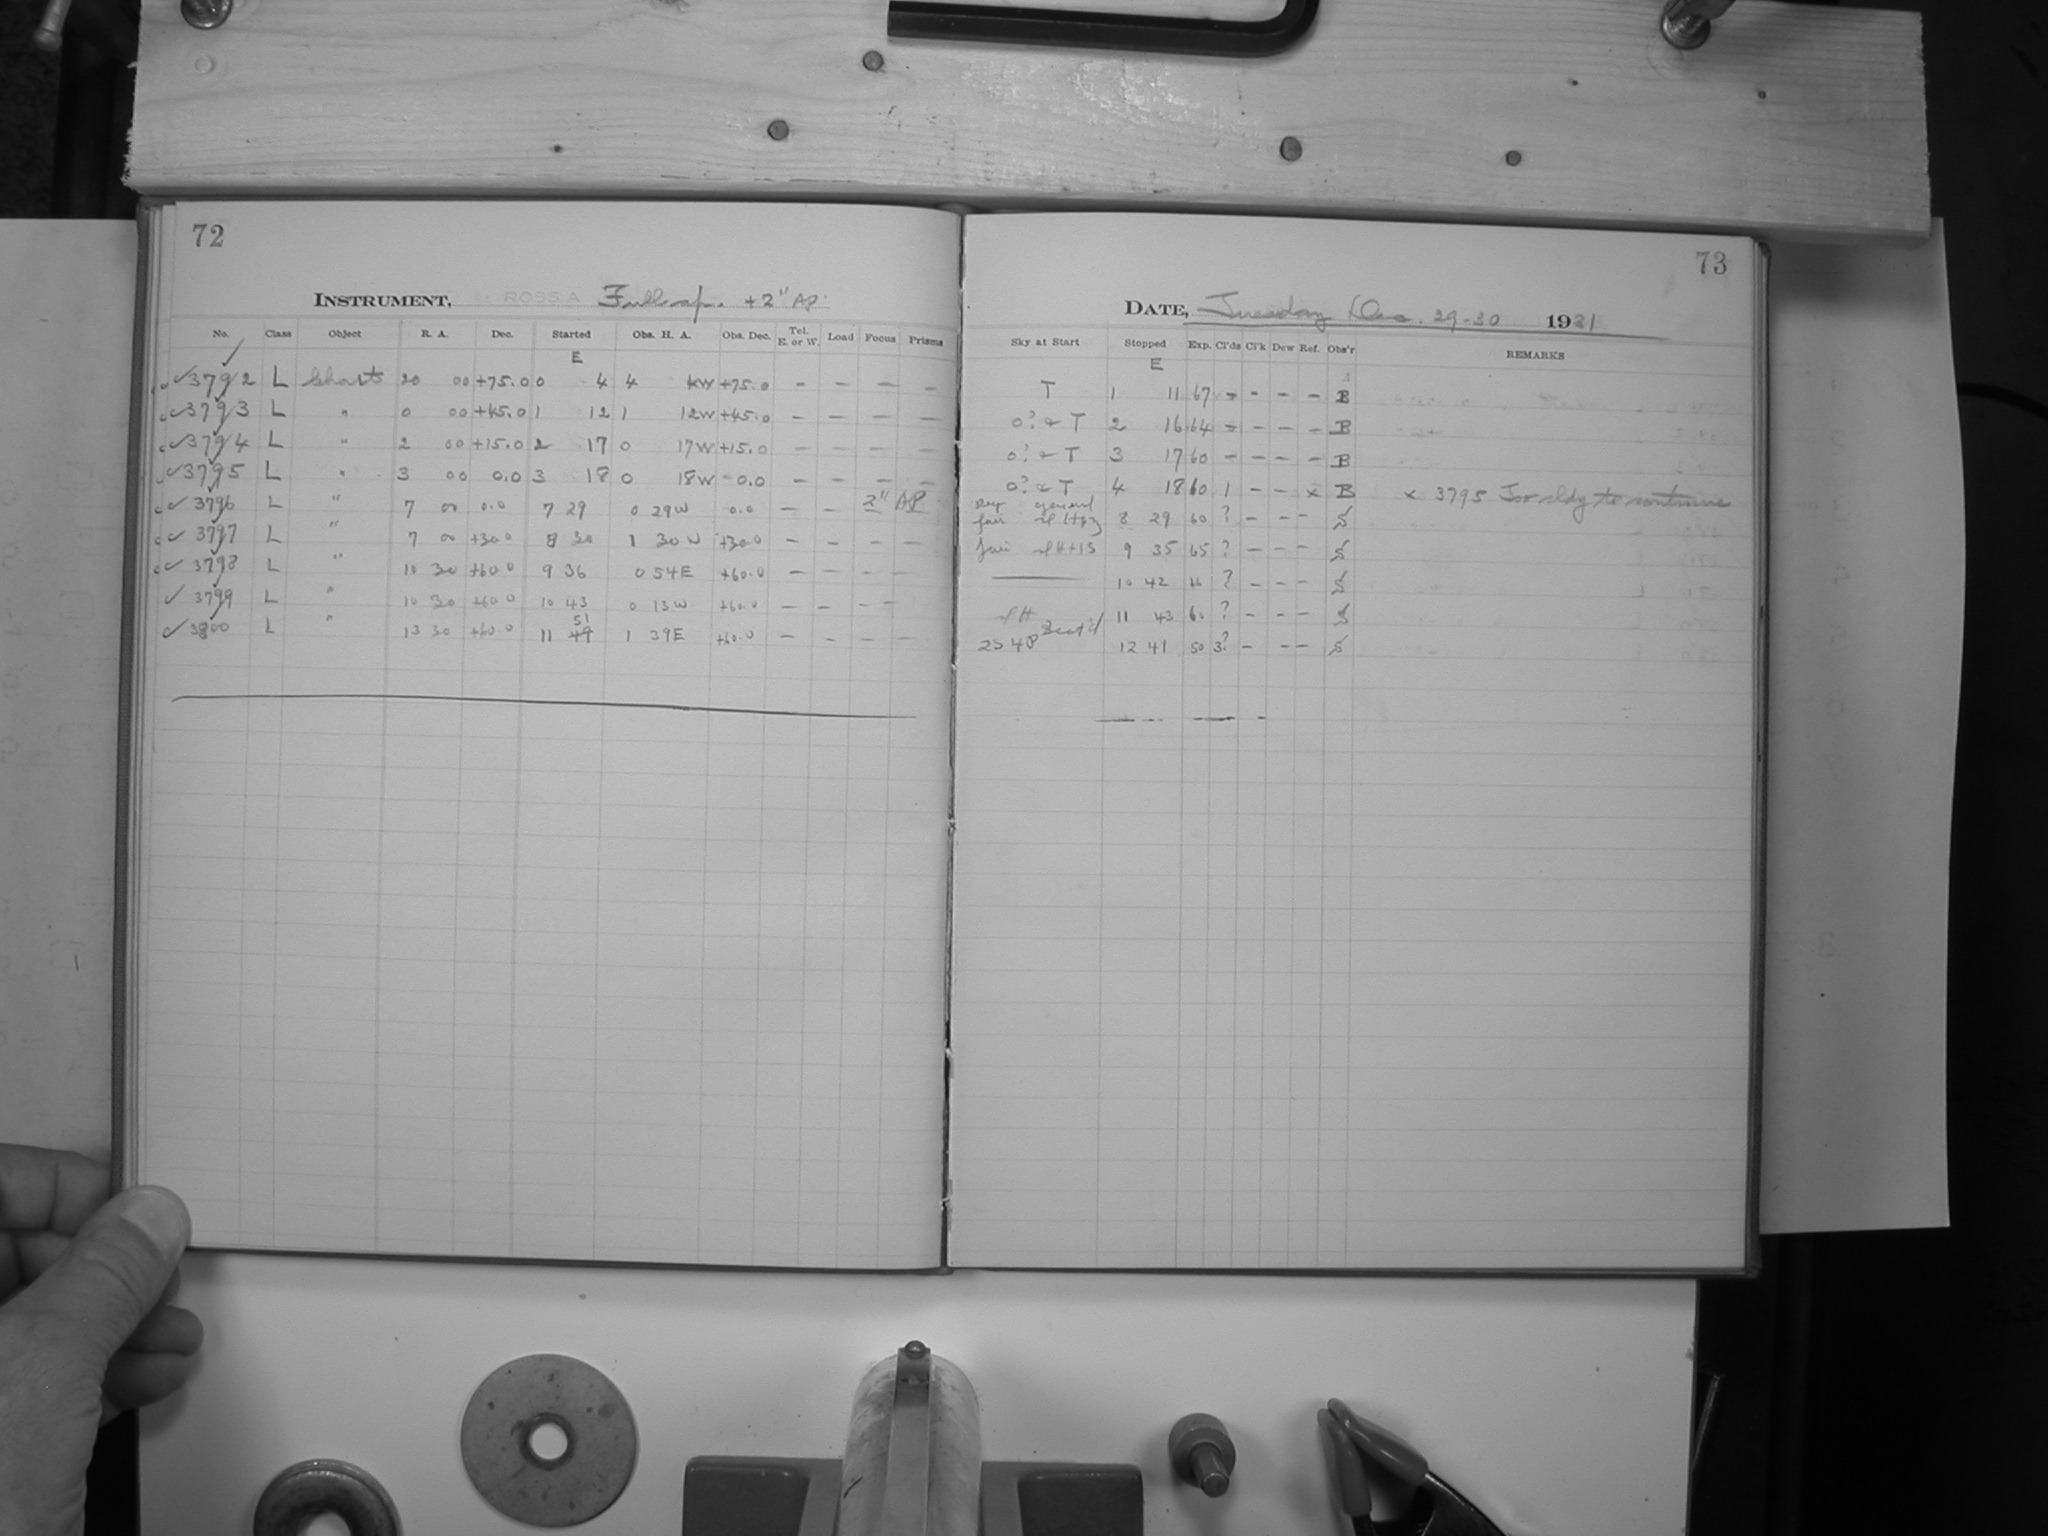 72
INSTRUMENT, ROSS A Full ap. + 2" Ap.
No. Class Object R. A. Dec. Started Obs. H. A. Obs. Dec. Tel. E. or W. Load Focus Prisms
E
3792 L Chart 20 00 +75.0 0 4 4 4W +75.0 - - - -
3793 L " 0 00 +45.0 1 12 1 12W +45.0 - - - -
3794 L " 2 00 +15.0 2 17 0 17W +15.0 - - - -
3795 L " 3 00 0.0 3 18 0 18W 0.0 - - - -
3796 L " 7 00 0.0 7 29 0 29W 0.0 - - 2" AP
3797 L " 7 00 +30.0 8 30 1 30W +30.0 - - - -
3798 L " 10 30 +60.0 9 36 0 54E +60.0 - - - -
3799 L " 10 30 +60.0 10 43 0 13W +60.0 - - - -
3800 L " 13 30 +60.0 11 51 1 39E +60.0 - - - -
73
DATE, Tuesday Dec. 29-30 1931
Sky at Start Stopped Exp. Cl'ds Cl'k Dew Ref. Obs'r REMARKS
E
T 1 11 67 - - - - B
0? & T 2 16 64 - - - - B
0? & T 3 17 60 - - - - B
0? & T 4 18 60 1 - - x B x 3795 Too cldy to continue
fair 8 29 60 ? - - - S
fair 9 35 65 ? - - - S
10 42 ? - - - S
11 43 60 ? - - - S
Scat'd
12 41 50 3? - - - S